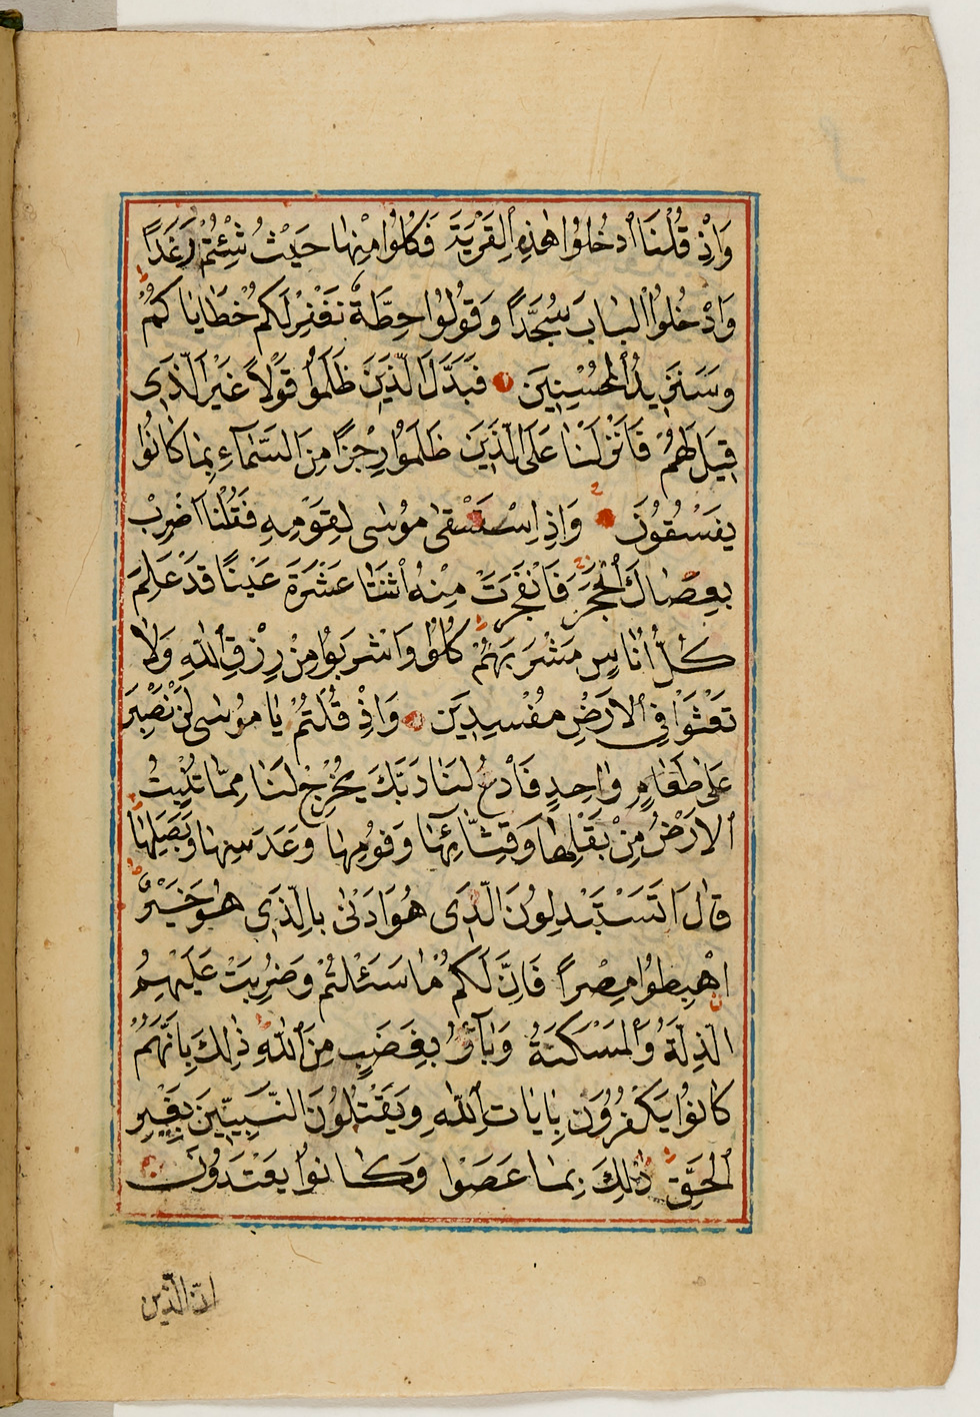 وَاِذْ قُلْنَا ادْخُلُوا هٰذِهِ الْقَرْيَةَ فَكُلُوا مِنْهَا حَيْثُ شِئْتُمْ رَغَدًا
وَادْخُلُوا الْبَابَ سُجَّدًا وَقُولُوا حِطَّةٌ نَغْفِرْ لَكُمْ خَطَايَاكُمْ
وَسَنَزِيدُ الْمُحْسِنِينَ فَبَدَّلَ الَّذِينَ ظَلَمُوا قَوْلًا غَيْرَ الَّذِى
قِيلَ لَهُمْ فَاَنْزَلْنَا عَلَى الَّذِينَ ظَلَمُوا رِجْزًا مِنَ السَّمَآءِ بِمَا كَانُوا
يَفْسُقُونَ وَاِذِ اسْتَسْقٰى مُوسٰى لِقَوْمِهِ فَقُلْنَا اضْرِبْ
بِعَصَاكَ الْحَجَرَ فَانْفَجَرَتْ مِنْهُ اثْنَتَا عَشْرَةَ عَيْنًا قَدْ عَلِمَ
كُلُّ اُنَاسٍ مَشْرَبَهُمْ كُلُوا وَاشْرَبُوا مِنْ رِزْقِ اللّٰهِ وَلَا
تَعْثَوْا فِى الْاَرْضِ مُفْسِدِينَ وَاِذْ قُلْتُمْ يَا مُوسٰى لَنْ نَصْبِرَ
عَلٰى طَعَامٍ وَاحِدٍ فَادْعُ لَنَا رَبَّكَ يُخْرِجْ لَنَا مِمَّا تُنْبِتُ
الْاَرْضُ مِنْ بَقْلِهَا وَقِثَّائِهَا وَفُومِهَا وَعَدَسِهَا وَبَصَلِهَا
قَالَ اَتَسْتَبْدِلُونَ الَّذِى هُوَ اَدْنٰى بِالَّذِى هُوَ خَيْرٌ
اهْبِطُوا مِصْرًا فَاِنَّ لَكُمْ مَا سَئَلْتُمْ وَضُرِبَتْ عَلَيْهِمُ
الذِّلَّةُ وَالْمَسْكَنَةُ وَبَآؤُ بِغَضَبٍ مِنَ اللّٰهِ ذٰلِكَ بِاَنَّهُمْ
كَانُوا يَكْفُرُونَ بِاٰيَاتِ اللّٰهِ وَيَقْتُلُونَ النَّبِيِّينَ بِغَيْرِ
الْحَقِّ ذٰلِكَ بِمَا عَصَوْا وَكَانُوا يَعْتَدُونَ
اِنَّ الَّذِينَ